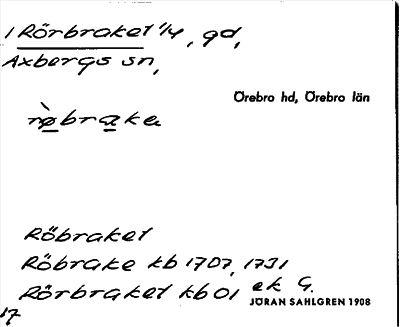 1 Rörbraket 1/4, gd,
Axbergs sn,
Örebro hd, Örebro län
rø̀brake
Röbraket
Röbrake kb 1707, 1731
Rörbraket kb 01 ek G.
JÖRAN SAHLGREN 1908
17